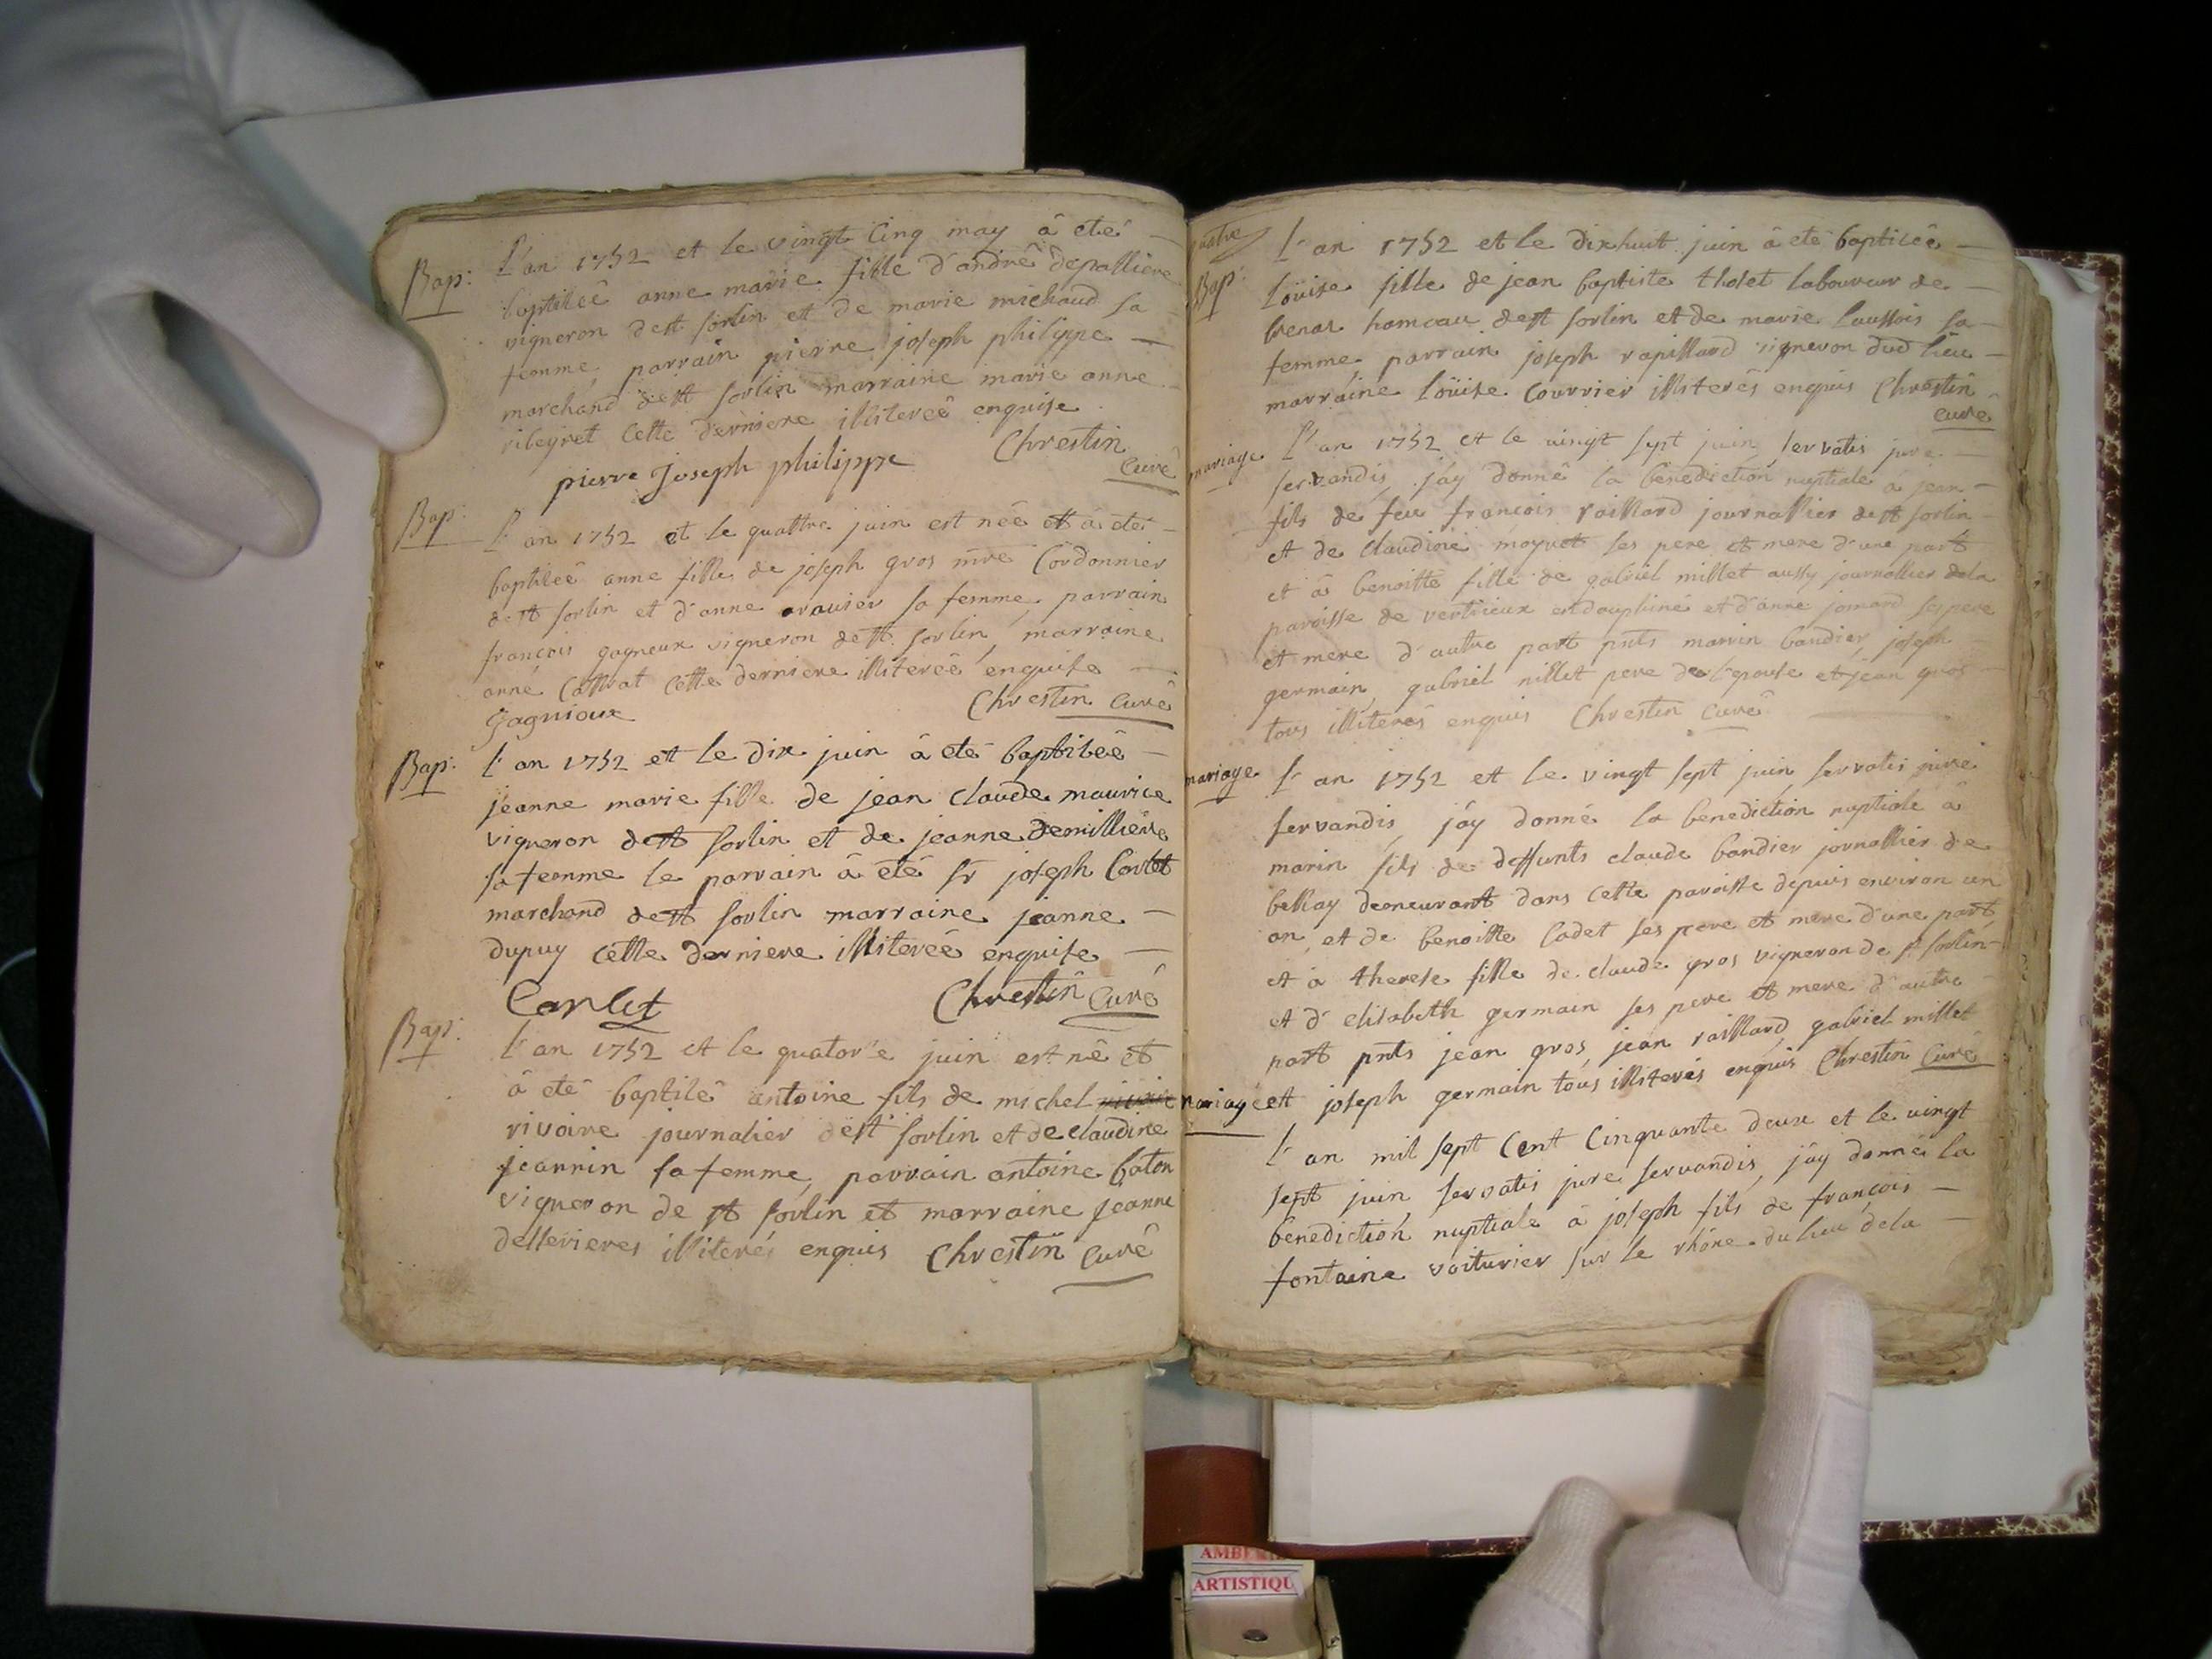 Bap: L'an 1752 et le vingt cinq may â eteê
baptiseê anne marie fille d'andrê depalliere
vigneron de st sorlin et de marie michaud sa
femme, parrain pierre joseph philippe
marchand de st sorlin marraine marie anne
ribeyret cette derniere illitereê enquise
pierre Joseph philippe Chrestin
Curê
Bap: L'an 1752 et le quattre juin est neê et â etê
baptiseê anne fille de joseph gros mre Cordonnier
de st sorlin et d'anne aravier sa femme, parrain
françois gagneux vigneron de st sorlin, marraine
anne cette derniere illitereê enquise
Gagnioux Chrestin Curê
Bap: L'an 1752 et le dix juin â etê baptiseê
jeanne marie fille de jean claude maurice
vigneron de st sorlin et de jeanne
sa femme le parrain â etê sr joseph Carlet
marchand de st sorlin marraine jeanne
dupuy cette derniere illitereê enquise
Carlet Chrestin Curê
Bap: L'an 1752 et le quatorse juin est nê et
â etê baptisê antoine fils de michel
rivoire journalier de st sorlin et de claudine
jeannin sa femme, parrain antoine baton
vigneron de st sorlin et marraine jeanne
desserieres illiterés enquis Chrestin Curê
L'an 1752 et le dixhuit juin â etê baptiseê
Bap: Loüise fille de jean baptiste tholet laboureur de
hameau de st sorlin et de marie laussois sa
femme, parrain joseph rapillard vigneron dud lieu
marraine loüise Courrier illiterês enquis Chrestin
curê
mariage L'an 1752 et le vingt sept juin, servatis jure
servandis, j'ay donnê la benediction nuptiale a jean
fils de feu françois raillard journallier de st sorlin
et de claudine moyret ses pere et mere d'une part
et â benoitte fille de gabriel millet aussy journallier dela
paroisse de vertrieux en dauphiné et d'anne jomard ses pere
et mere d'autre part pnts marin bandier, joseph
germain, gabriel millet pere de l'epouse et jean gros
tous illiterés enquis Chrestin Curê
mariage L'an 1752 et le vingt sept juin servatis jure
servandis, j'ay donné la benediction nuptiale â
marin fils de deffunts claude bandier jornallier de
bellay demeurant dans cette paroisse depuis environ un
an, et de benoitte Cadet ses pere et mere d'une part,
et â therese fille de claude gros vigneron de st sorlin
et d'elisabeth germain ses pere et mere d'autre
part pnts jean gros, jean raillard, gabriel millet
et joseph germain tous illiterés enquis Chrestin Curê
mariage
L'an mil sept Cent Cinquante deux et le vingt
sept juin, servatis jure servandis, j'ay donné la
benediction nuptiale â joseph fils de françois
fontaine voiturier sur le rhône du lieu dela
AMBE
ARTISTIQU